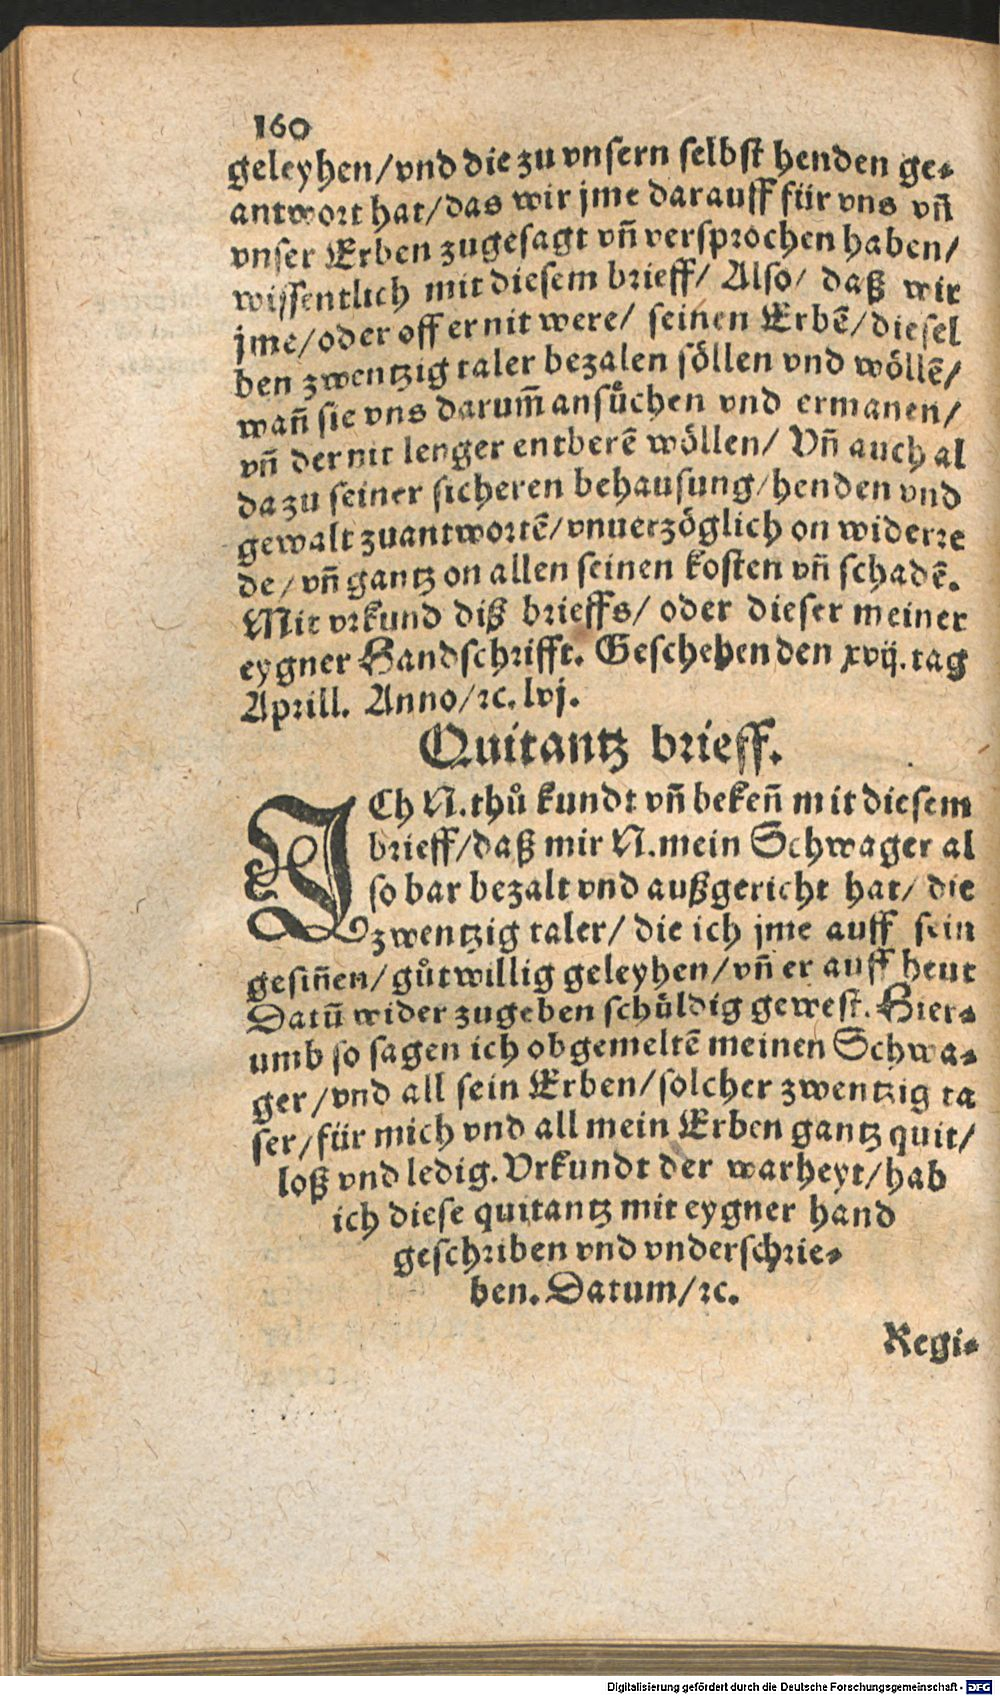 160
geleyhen/vnd die zu vnsern selbst henden ge⸗
antwort hat/das wir jme darauff für vns vñ
vnser Erben zugesagt vñ versprochen haben/
wissentlich mit diesem brieff/ Also/ daß wir
jme/oder off er nit were/ seinen Erbẽ/diesel
ben zwentzig taler bezalen söllen vnd wöllẽ/
wañ sie vns darum̃ ansůchen vnd ermanen/
vñ der nit lenger entberẽ wöllen/ Vñ auch al
da zu seiner sicheren behausung/henden vnd
gewalt zuantwortẽ/vnuerzöglich on widerre
de/vñ gantz on allen seinen kosten vñ schadẽ.
Mit vrkund diß brieffs/ oder dieser meiner
eygner Handschrifft. Geschehen den xvij. tag
Aprill. Anno/ꝛc. lvj.
Quitantz brieff.
ICh N. thů kundt vñ bekeñ mit diesem
brieff/daß mir N. mein Schwager al
so bar bezalt vnd außgericht hat/ die
zwentzig taler/ die ich jme auff sein
gesiñen/gůtwillig geleyhen/vñ er auff heut
Datũ wider zugeben schůldig gewest. Hier⸗
umb so sagen ich obgemeltẽ meinen Schwa⸗
ger/vnd all sein Erben/solcher zwentzig ta
ser/für mich vnd all mein Erben gantz quit/
loß vnd ledig. Vrkundt der warheyt/hab
ich diese quitantz mit eygner hand
geschriben vnd vnderschrie⸗
ben. Datum/ꝛc.
Regi⸗
Digitalisierung gefördert durch die Deutsche Forschungsgemeinschaft - DFG